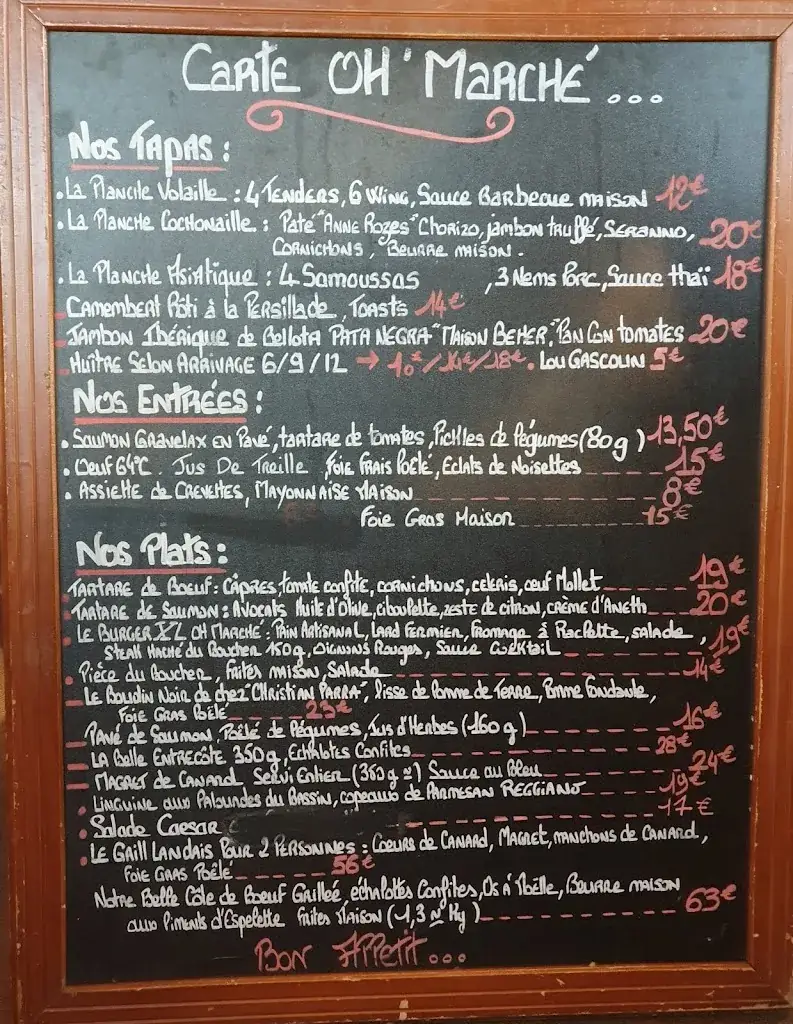 CARTE OH' MARCHÉ...
Nos TAPAS :
. La Planche Volaille : 4 Tenders, 6 Wing, Sauce Barbecue maison 12€
. La Planche Cochonaille : Pate "Anne Rozes" Chorizo, jambon truffé, Seranno, 20€
Cornichons, Beurre maison.
. La Planche Asiatique : 4 Samoussas , 3 Nems Porc, Sauce thaï 18€
Camembert Rôti à la Persillade, Toasts 14€
Jambon Ibérique de Bellota PATA NEGRA "Maison Beher", Pan Con tomates 20€
Huître Selon Arrivage 6/9/12 → 10€/14€/18€ . Lou Gascoun 5€
Nos Entrées :
. Saumon Gravelax en Pavé, tartare de tomates, Pickles de légumes (80g) 13,50€
. Oeuf 64°C . Jus De Treille Foie Frais Poêlé, Eclats de Noisettes 15€
. Assiette de Crevettes, Mayonnaise Maison 8€
Foie Gras Maison 15€
Nos Plats :
Tartare de Boeuf : Câpres, tomate confite, cornichons, celeris, oeuf Mollet 19€
Tartare de Saumon : Avocats Huile d'Olive, ciboulette, zeste de citron, crème d'Aneth 20€
Le Burger XL OH Marché : Pain Artisanal, Lard Fermier, fromage à Raclette, salade,
Steak Haché du Boucher 150g, Oignons Rouges, Sauce Cocktail 19€
. Pièce du Boucher, frites maison, Salade 14€
Le Boudin Noir de chez "Christian Parra", Lisse de Pomme de Terre, Pomme fondante,
Foie Gras Poêlé 23€
Pavé de Saumon, Poêlé de Légumes, Jus d'Herbes (160 g) 16€
La Belle Entrecôte 350g, Echalotes Confites 28€
Magret de Canard Servi Entier (350 g ~) Sauce au Bleu 24€
Linguine aux Palourdes du Bassin, copeaux de Parmesan Reggiano 19€
. Salade Caesar 17€
. Le Grill Landais Pour 2 Personnes : Coeurs de Canard, Magret, manchons de canard,
Foie Gras Poêlé 56€
Notre Belle Côte de Boeuf Grillée, échalottes Confites, Os à Moëlle, Beurre maison
aux Piments d'Espelette frites Maison (1,3 ~ Kg) 63€
Bon Appetit...